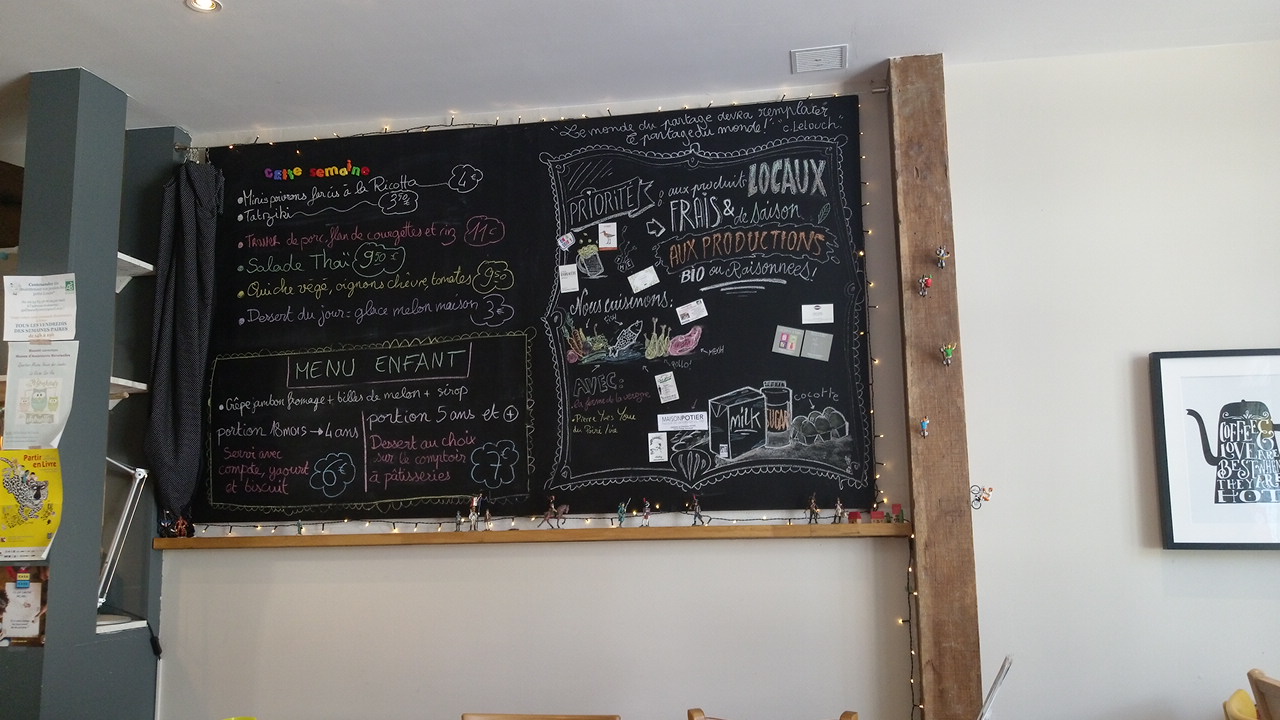 "Le monde du partage devra remplacer
le partage du monde!" C. Lelouch.
Cette semaine
Minis poivrons farcis à la Ricotta 4
Tatziki 3,50
de porc, flan de courgettes et riz 11€
Salade Thaï 9,50
Quiche végé, oignons chèvre, tomates 9,50
Dessert du jour = glace melon maison 3
MENU ENFANT
Crêpe jambon fromage + billes de melon + sirop
portion 18 mois → 4 ans
Servi avec
compote, yaourt
et biscuit
6€
portion 5 ans et +
Dessert au choix
sur le comptoir
à pâtisseries
7€
PRIORITÉS : aux produits LOCAUX
FRAIS & de Saison
AUX PRODUCTIONS
BIO ou Raisonnées!
Nous cuisinons:
AVEC:
Pierre Yves
MAISON POTIER
MILK
SUGAR
cocotte
TOUS LES VENDREDIS
DES SEMAINES PAIRES
Partir
en Livre
COFFEE &
LOVE ARE
BEST WHEN
THEY ARE
HOT